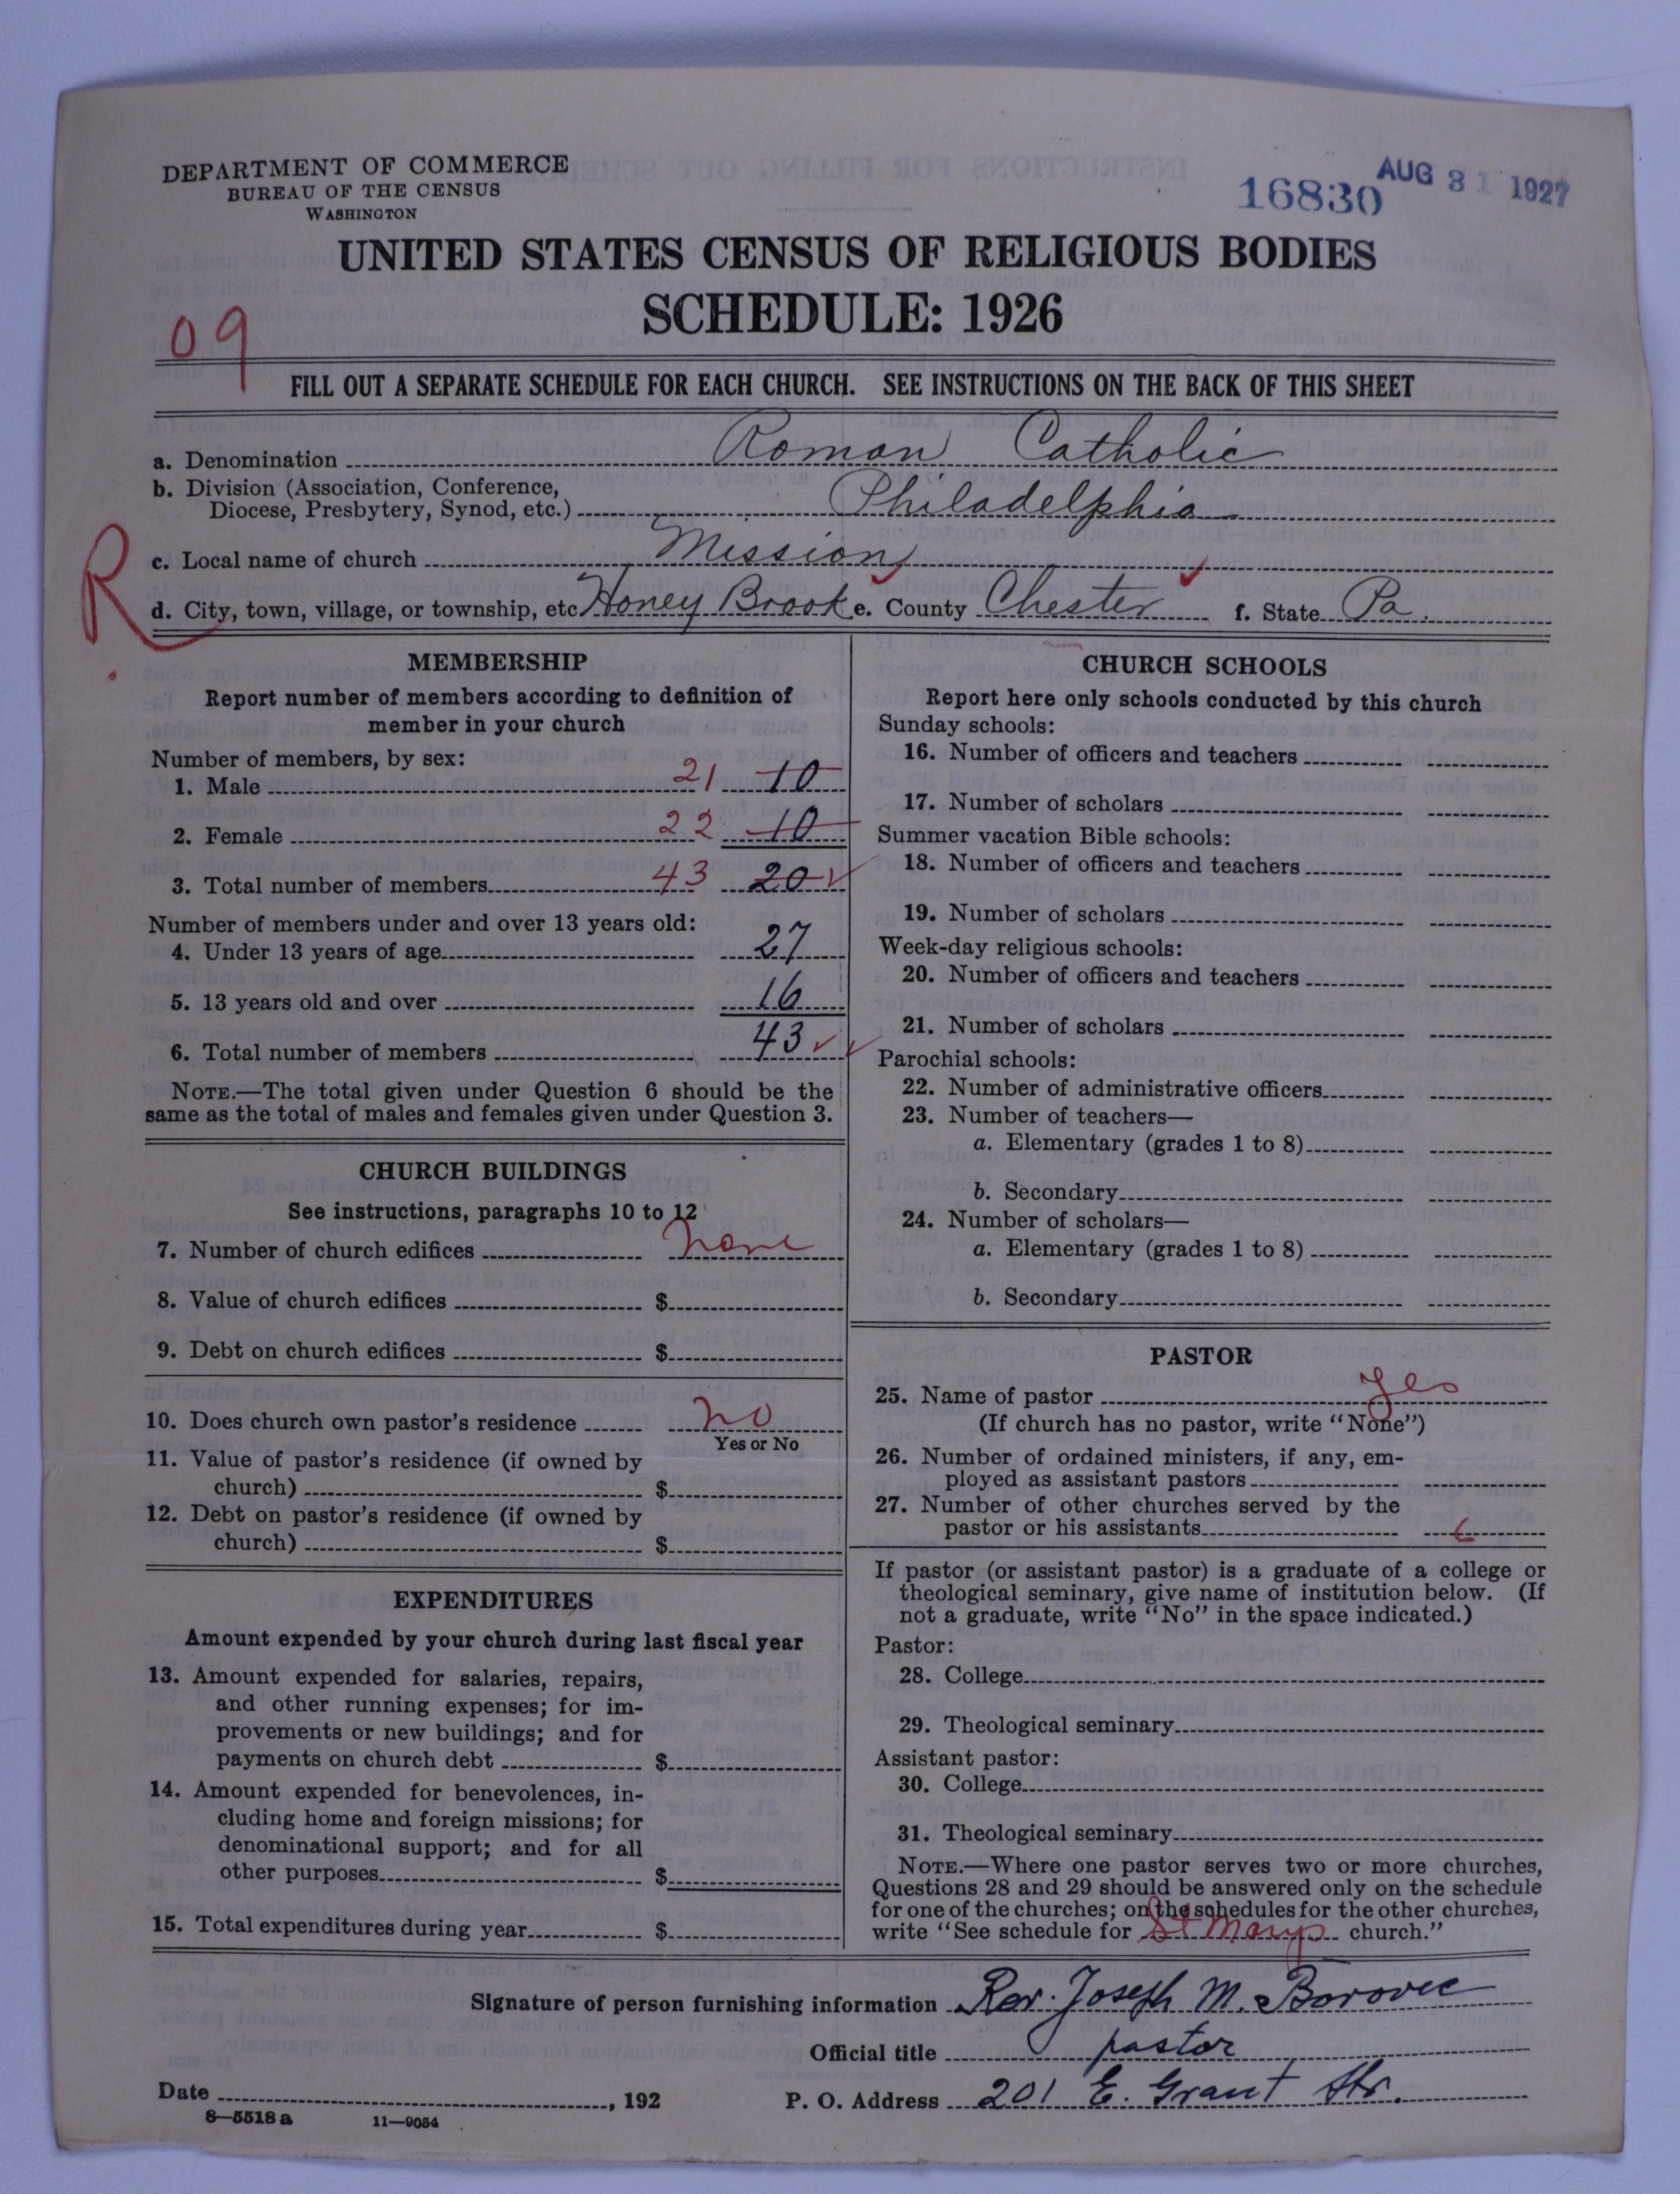 DEPARTMENT OF COMMERCE
BUREAU OF THE CENSUS
WASHINGTON
16830
AUG 31 1927
UNITED STATES CENSUS OF RELIGIOUS BODIES
SCHEDULE: 1926
09
FILL OUT A SEPARATE SCHEDULE FOR EACH CHURCH. SEE INSTRUCTIONS ON THE BACK OF THIS SHEET
a. Denomination Roman Catholic
b. Division (Association, Conference,
Diocese, Presbytery, Synod, etc.) Philadelphia
R
c. Local name of church Mission
d. City, town, village, or township, etc Honey Brook e. County Chester f. State Pa.
MEMBERSHIP
Report number of members according to definition of
member in your church
Number of members, by sex:
1. Male 21 10
2. Female 22 10
3. Total number of members 43 20
Number of members under and over 13 years old:
4. Under 13 years of age 27
5. 13 years old and over 16
6. Total number of members 43
NOTE.—The total given under Question 6 should be the
same as the total of males and females given under Question 3.
CHURCH BUILDINGS
See instructions, paragraphs 10 to 12
7. Number of church edifices none
8. Value of church edifices $
9. Debt on church edifices $
10. Does church own pastor's residence no
Yes or No
11. Value of pastor's residence (if owned by
church) $
12. Debt on pastor's residence (if owned by
church) $
EXPENDITURES
Amount expended by your church during last fiscal year
13. Amount expended for salaries, repairs,
and other running expenses; for im-
provements or new buildings; and for
payments on church debt $
14. Amount expended for benevolences, in-
cluding home and foreign missions; for
denominational support; and for all
other purposes $
15. Total expenditures during year $
CHURCH SCHOOLS
Report here only schools conducted by this church
Sunday schools:
16. Number of officers and teachers
17. Number of scholars
Summer vacation Bible schools:
18. Number of officers and teachers
19. Number of scholars
Week-day religious schools:
20. Number of officers and teachers
21. Number of scholars
Parochial schools:
22. Number of administrative officers
23. Number of teachers—
a. Elementary (grades 1 to 8)
b. Secondary
24. Number of scholars—
a. Elementary (grades 1 to 8)
b. Secondary
PASTOR
25. Name of pastor yes
(If church has no pastor, write "None")
26. Number of ordained ministers, if any, em-
ployed as assistant pastors
27. Number of other churches served by the
pastor or his assistants
If pastor (or assistant pastor) is a graduate of a college or
theological seminary, give name of institution below. (If
not a graduate, write "No" in the space indicated.)
Pastor:
28. College
29. Theological seminary
Assistant pastor:
30. College
31. Theological seminary
NOTE.—Where one pastor serves two or more churches,
Questions 28 and 29 should be answered only on the schedule
for one of the churches; on the schedules for the other churches,
write "See schedule for St Marys church."
Signature of person furnishing information Rev. Joseph M. Borovec
Official title pastor
Date , 192 P. O. Address 201 E. Grant Str.
8—5518 a 11—9054